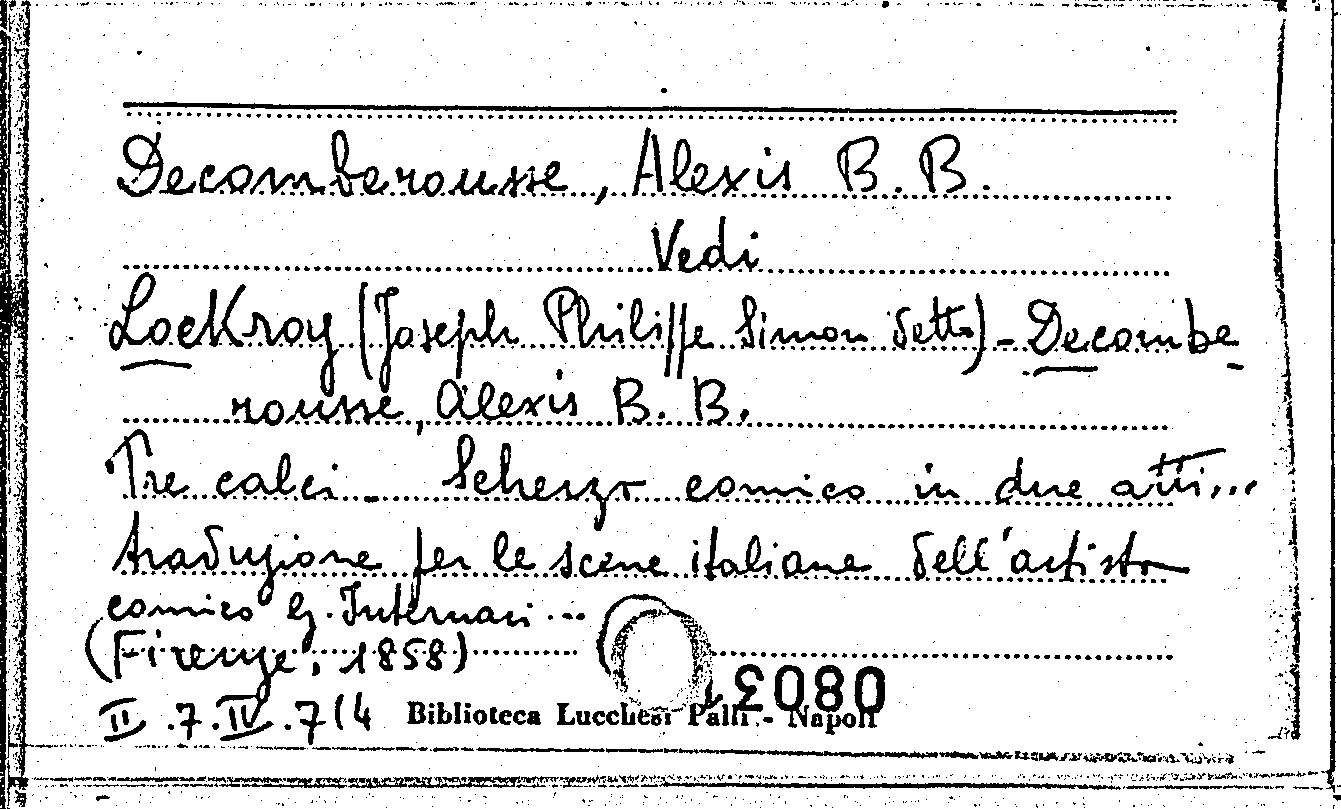 Decomberousse, Alexis B. B.
Vedi
Lockroy (Joseph Philippe Simon detto) - Decombe
rousse, Alexis B. B.
Tre calci - Scherzo comico in due atti...
traduzione per le scene italiane dell'artista
comico G. Internari ...
(Firenze, 1858)
II.7.IV.7(4 Biblioteca Lucchesi Palli - Napoli